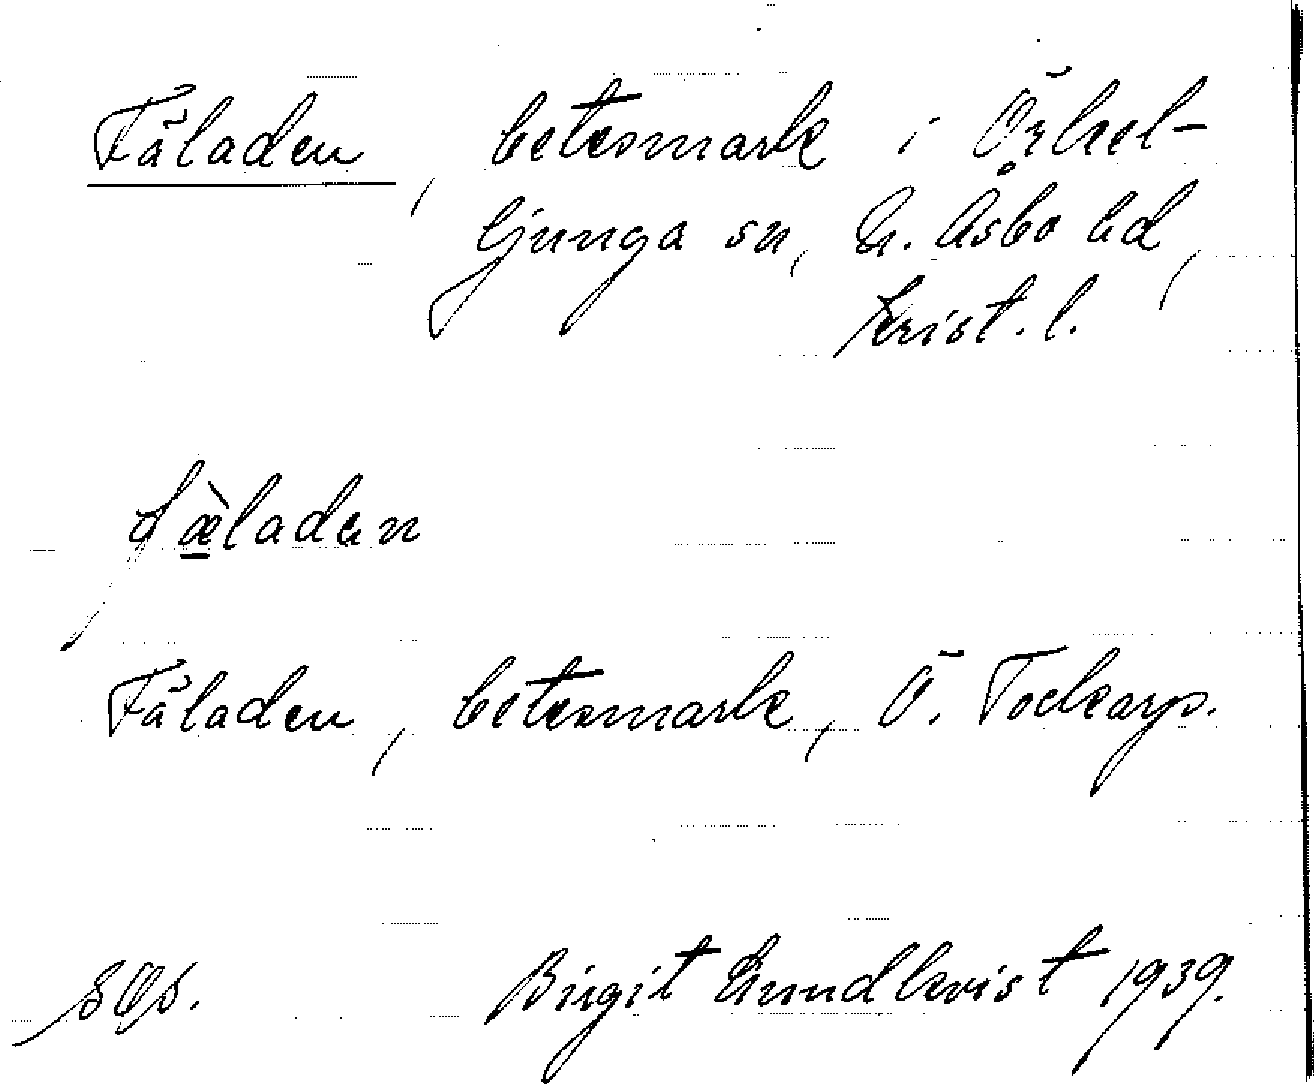 Fäladen, betesmark i Örkel-
ljunga sn, N. Åsbo hd,
Krist. l.
fæ̀ladən
Fäladen, betesmark, Ö. Tockarp.
Birgit Lundkvist 1939.